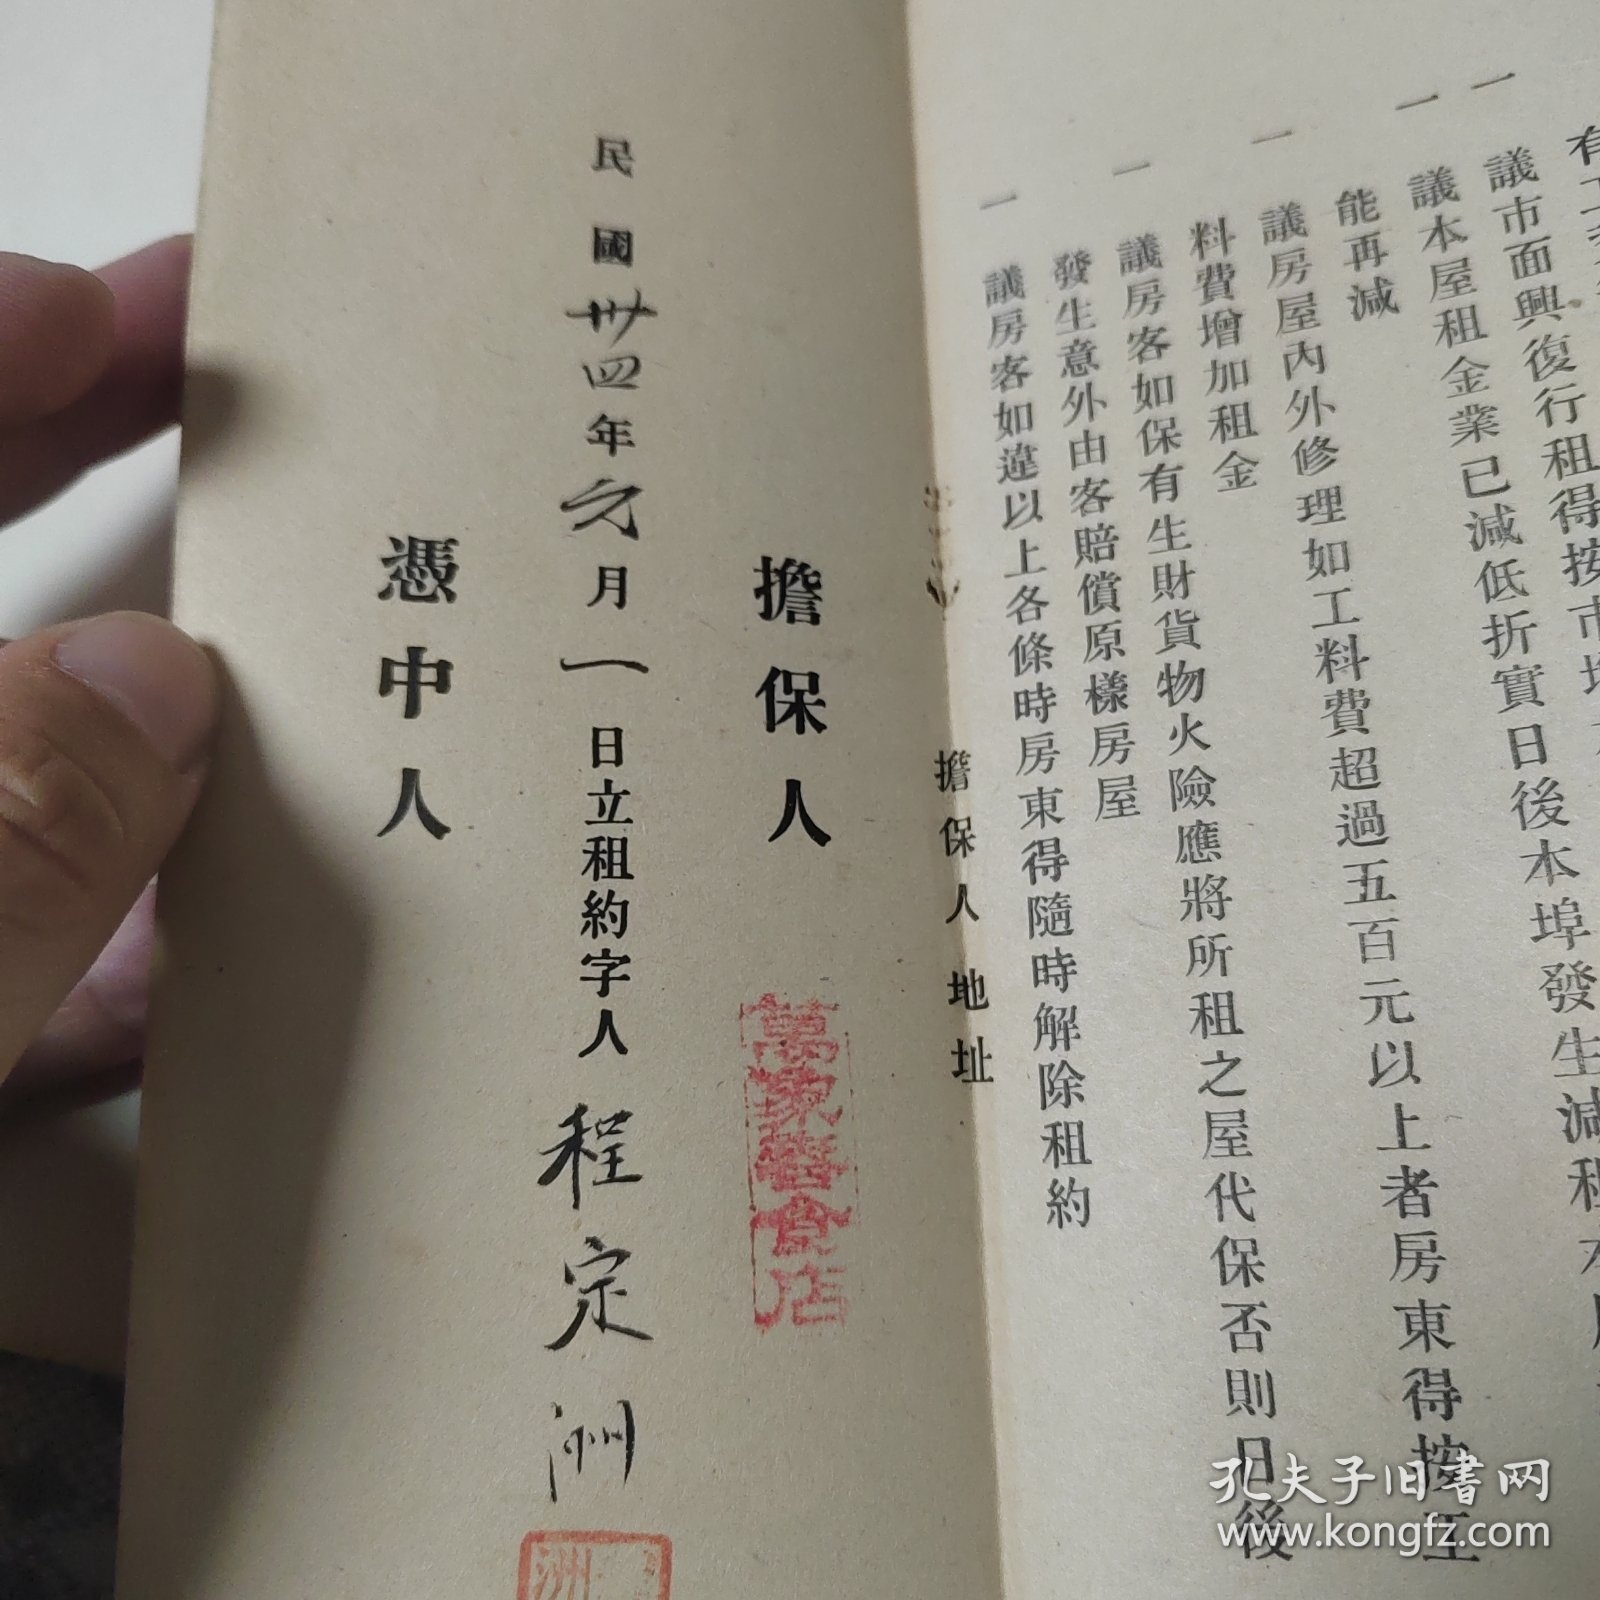 一議市面興復行租得按市
一議本屋租金業已減低折實日後本埠發生減租
能再減
一議房屋內外修理如工料費超過五百元以上者房東得按工
料費增加租金
一議房客如保有生財貨物火險應將所租之屋代保否則日後
發生意外由客賠償原樣房屋
一議房客如違以上各條時房東得隨時解除租約
擔保人地址
擔保人
萬象 食店
民國卅四年元月一日立租約字人程定洲
洲
憑中人
孔夫子旧書网
www.kongfz.com